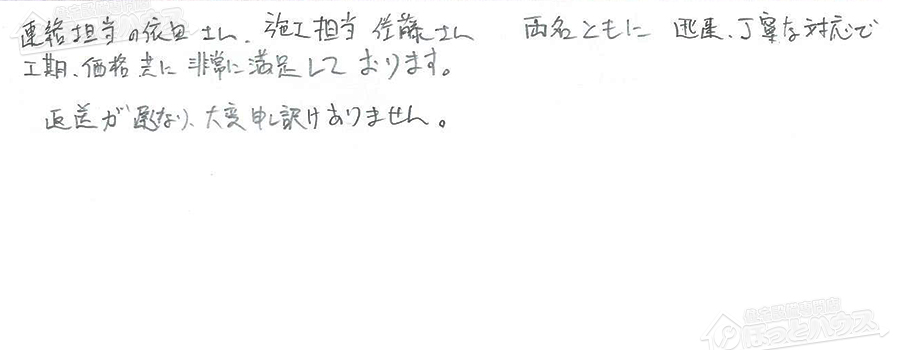 連絡担当の依田さん、施工担当 佐藤さん 両名ともに 迅速、丁寧な対応で
工期、価格共に非常に満足しております。
返送が遅くなり、大変申し訳けありません。
住宅設備専門店
ほっとハウス